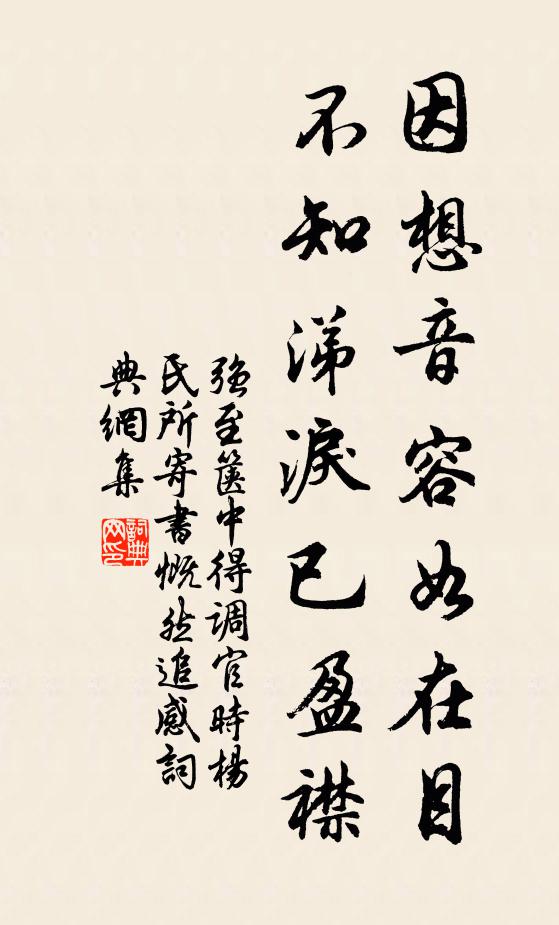 因想音容如在目
不知涕淚已盈襟
强至箧中得調官時楊
氏所寄書慨然追感詞
典網集
詞典
网印